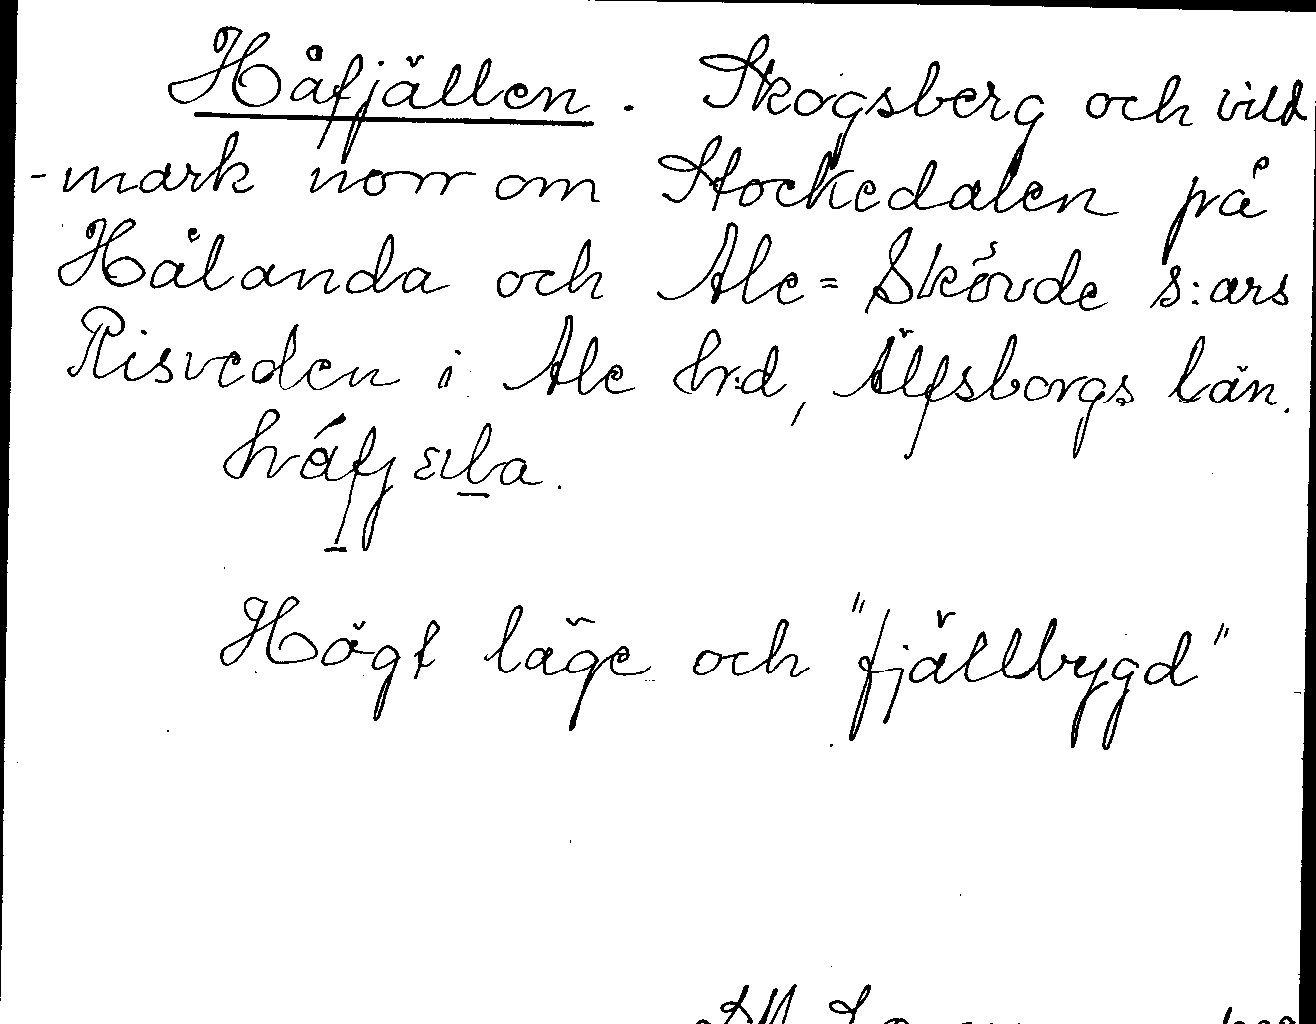 Håfjällen. Skogsberg och vild
-mark norr om Stockedalen på
Hålanda och Ale=Skövde s:ars
Risveden i Ale hrd, Älfsborgs län.
Högt läge och "fjällbygd"